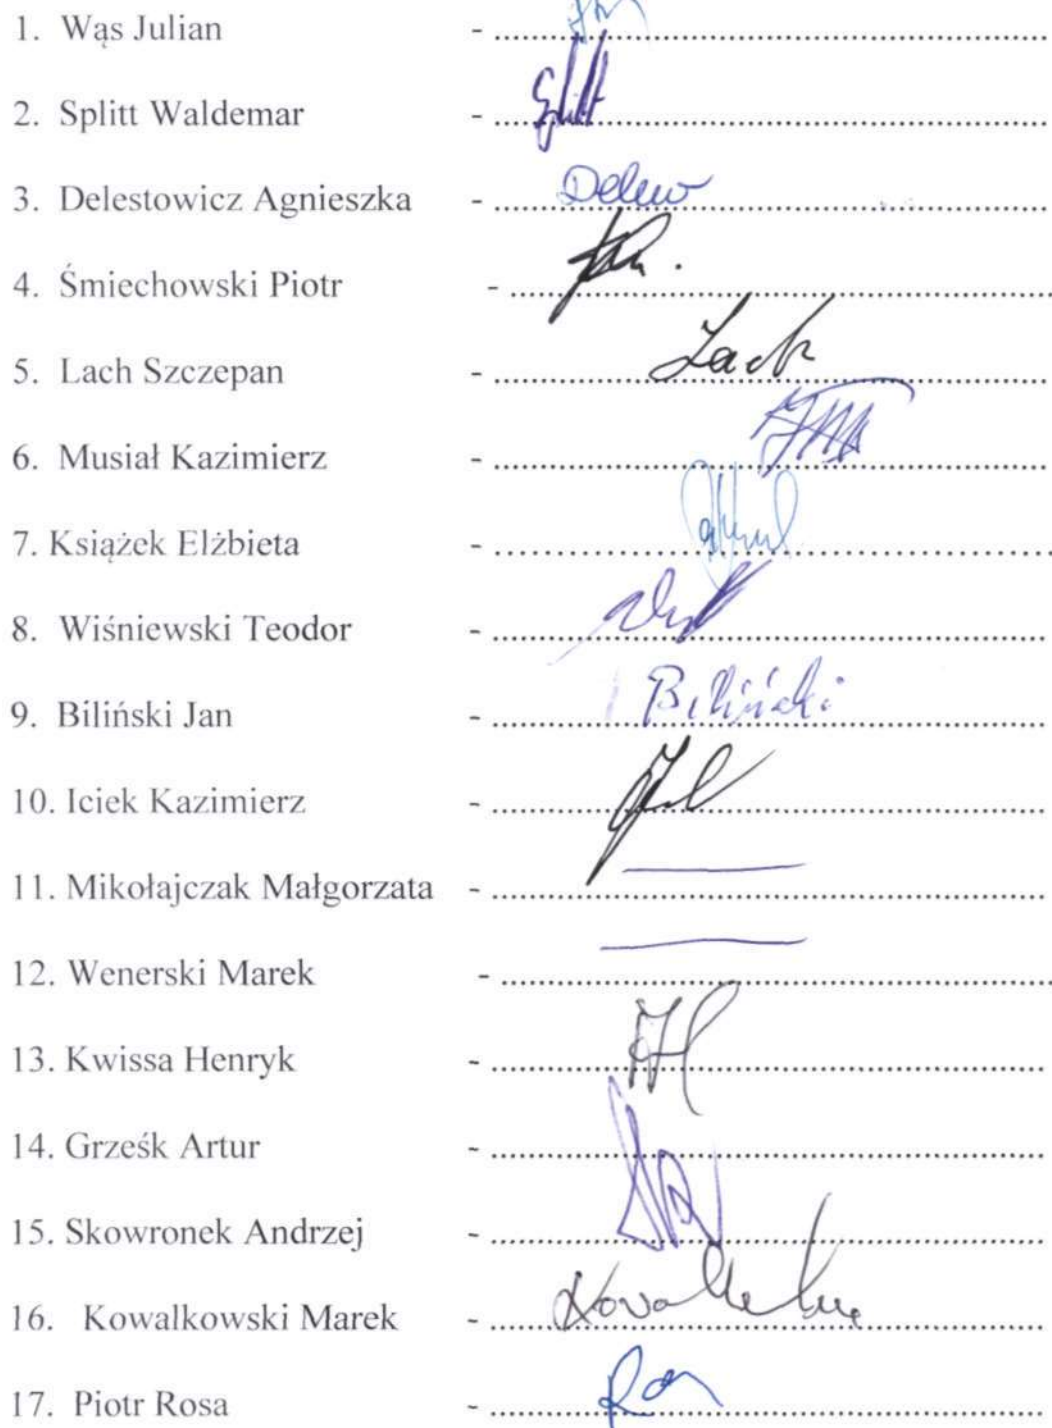 1. Wąs Julian - ........................................
2. Splitt Waldemar - ........................................ Splitt
3. Delestowicz Agnieszka - ........................................
4. Śmiechowski Piotr - ........................................
5. Lach Szczepan - ........................................ Lach
6. Musiał Kazimierz - ........................................
7. Książek Elżbieta - ........................................
8. Wiśniewski Teodor - ........................................
9. Biliński Jan - ........................................ Biliński
10. Iciek Kazimierz - ........................................
11. Mikołajczak Małgorzata - ........................................
12. Wenerski Marek - ........................................
13. Kwissa Henryk - ........................................
14. Grześk Artur - ........................................
15. Skowronek Andrzej - ........................................
16. Kowalkowski Marek - ........................................
17. Piotr Rosa - ........................................